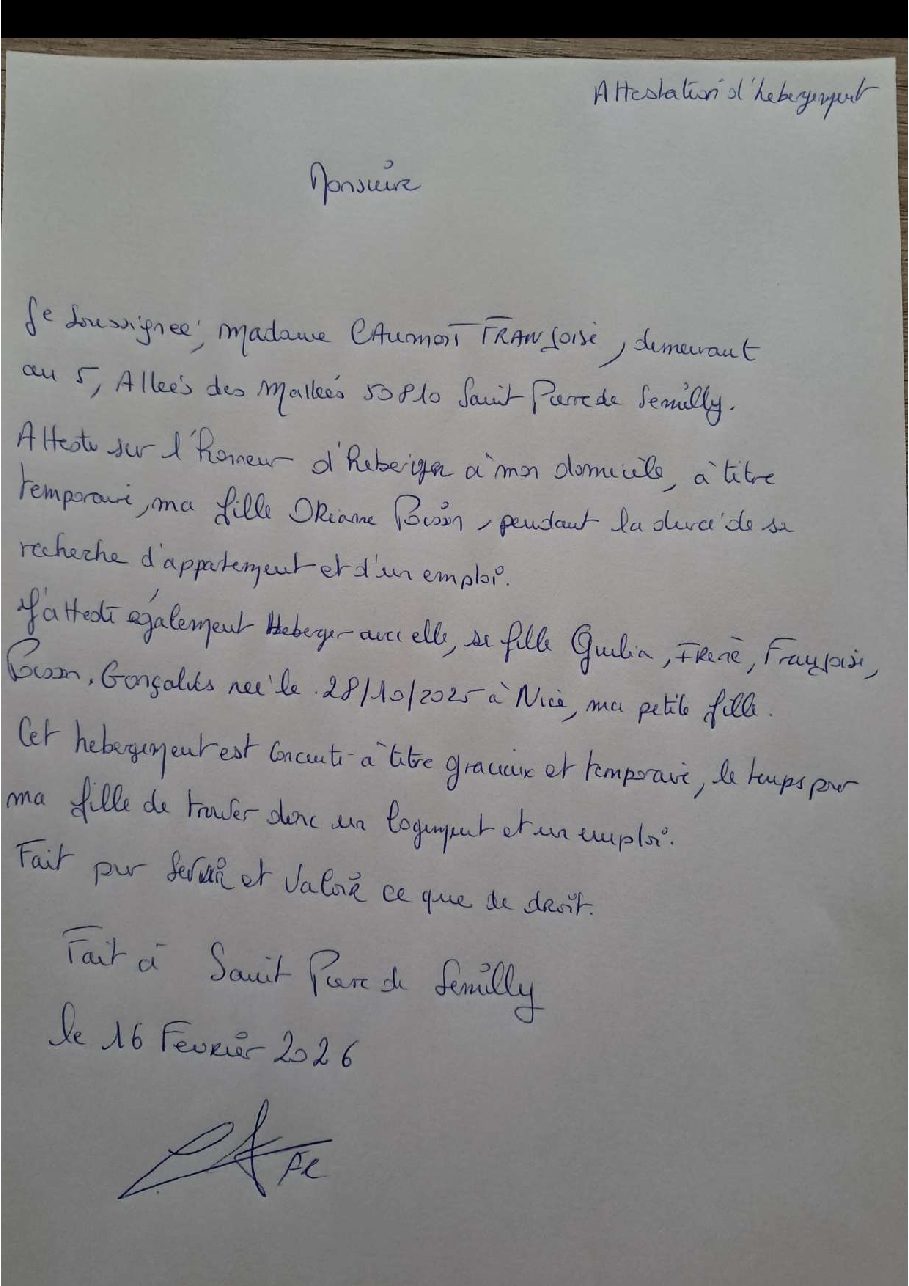 Attestation d'hebergement
Monsieur
Je soussignée, madame CAumont FRANçoise, demeurant
au 5, Allées des Mallées 50810 Saint Pierre de Semilly.
Atteste sur l'honneur d'heberger à mon domicile, à titre
temporaire, ma fille ORianne Bisson, pendant la durée de sa
recherche d'appartement et d'un emploi.
J'atteste également Heberger avec elle, sa fille Giulia, Irène, Françoise,
Bisson, Gonçalves née le 28/10/2025 à Nice, ma petite fille.
Cet hebergement est à titre gracieux et temporaire, le temps pour
ma fille de trouver donc un logement et un emploi.
Fait pour servir et valoir ce que de droit.
Fait à Saint Pierre de Semilly
le 16 Fevrier 2026
FC